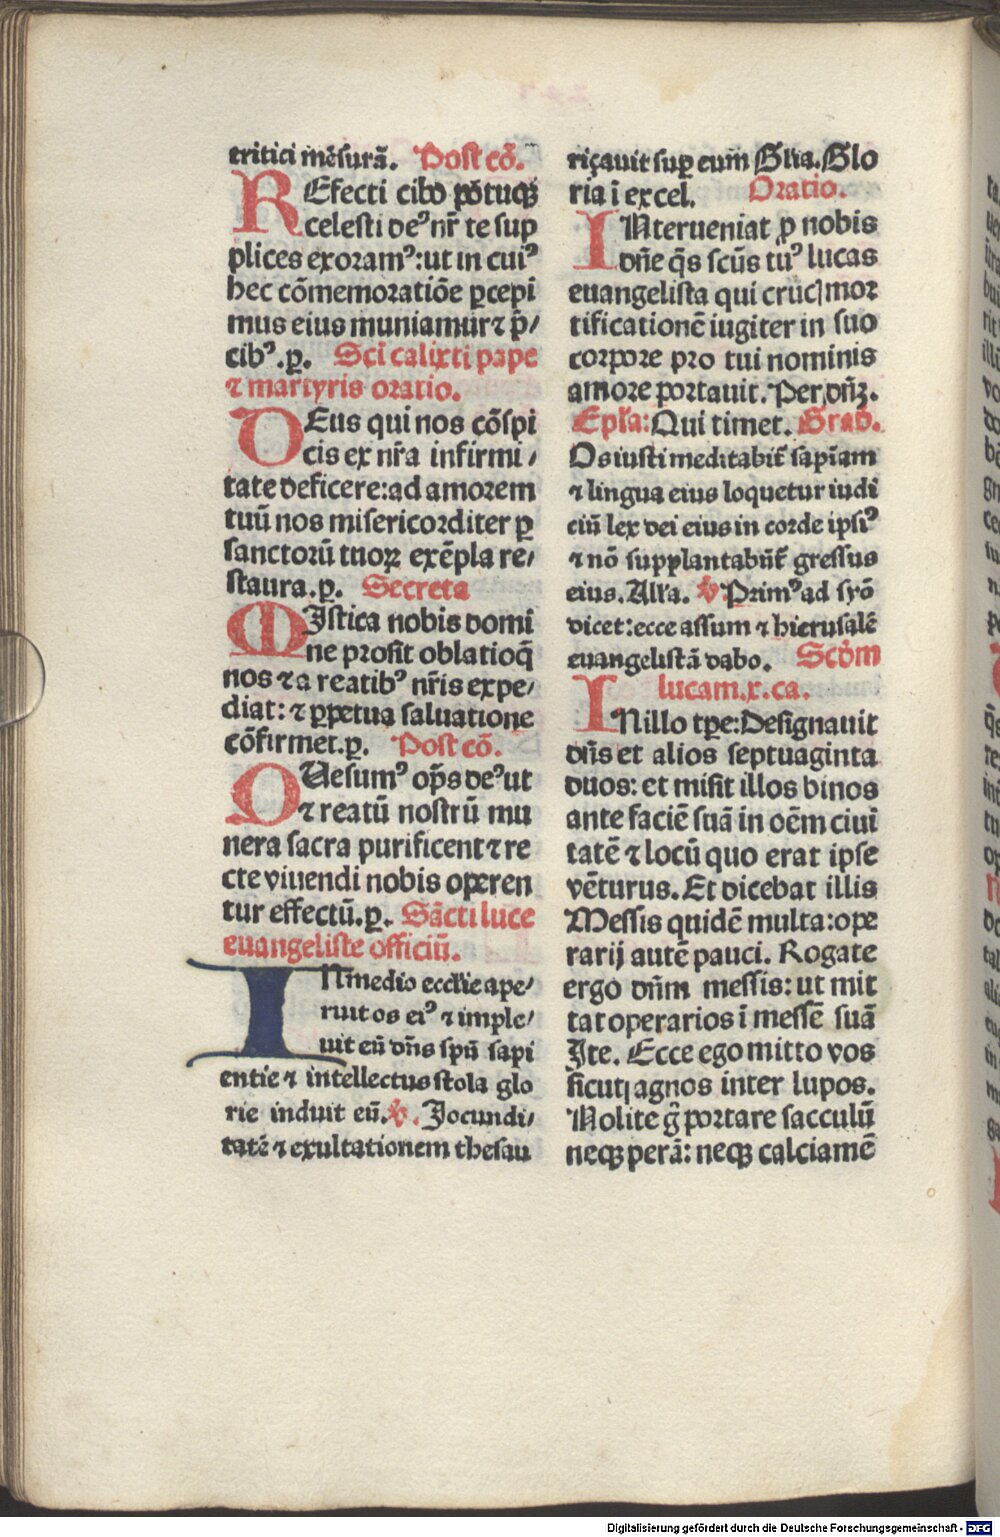 tritici mẽsurã. Post cõ.
REfecti cibo põtuqꝫ
celesti deꝰ nr̃ te sup
plices exoramꝰ: ut in cuiꝰ
hec cõmemoratiõe ꝑcepi
mus eius muniamur ⁊ p̃/
cibꝰ.ꝑ. Sc̃i calixti pape
⁊ martyris oratio.
DEus qui nos cõspi
cis ex nr̃a infirmi/
tate deficere: ad amorem
tuũ nos misericorditer ꝑ
sanctorũ tuoꝝ exẽpla re/
staura.ꝑ. Secreta
MIstica nobis domi
ne prosit oblatio q̃
nos ⁊ a reatibꝰ nr̃is expe/
diat: ⁊ ꝑpetua saluatione
cõfirmet.ꝑ. Post cõ.
QUesumꝰ op̃s deꝰ ut
⁊ reatũ nostrũ mu
nera sacra purificent ⁊ re
cte viuendi nobis operen
tur effectũ.ꝑ. Sãcti luce
euangeliste officiũ.
IN medio eccl̃ie ape/
ruit os eiꝰ ⁊ imple/
uit eũ dñs spũ sapi
entie ⁊ intellectus stola glo
rie induit eũ. ℣. Jocundi/
tatẽ ⁊ exultationem thesau
riçauit sup̱ eum Glr̃ia. Glo
ria ĩ excel. Oratio.
INterueniat ꝓ nobis
dñe q̃s scũs tuꝰ lucas
euangelista qui crucꝭ mor
tificationẽ iugiter in suo
corpore pro tui nominis
amore portauit. Per dñꝫ.
Epl̃a: Qui timet. Grad.
Os iusti meditabit̃ sapiam
⁊ lingua eius loquetur iudi
ciũ lex dei eius in corde ipsiꝰ
⁊ nõ supplantabũt̃ gressus
eius. All̃a. ℣ Primꝰ ad syõ
dicet: ecce assum ⁊ hierusalẽ
euangelistã dabo. Scdm̃
lucam.x.ca.
IN illo tꝑe: Designauit
dñs et alios septuaginta
duos: et misit illos binos
ante faciẽ suã in oẽm ciui
tatẽ ⁊ locũ quo erat ipse
vẽturus. Et dicebat illis
Messis quidẽ multa: ope
rarij autẽ pauci. Rogate
ergo dñm messis: ut mit
tat operarios ĩ messẽ suã
Ite. Ecce ego mitto vos
sicut agnos inter lupos.
Nolite g̃ portare sacculũ
neqꝫ perã: neqꝫ calciamẽ
Digitalisierung gefördert durch die Deutsche Forschungsgemeinschaft - DFG